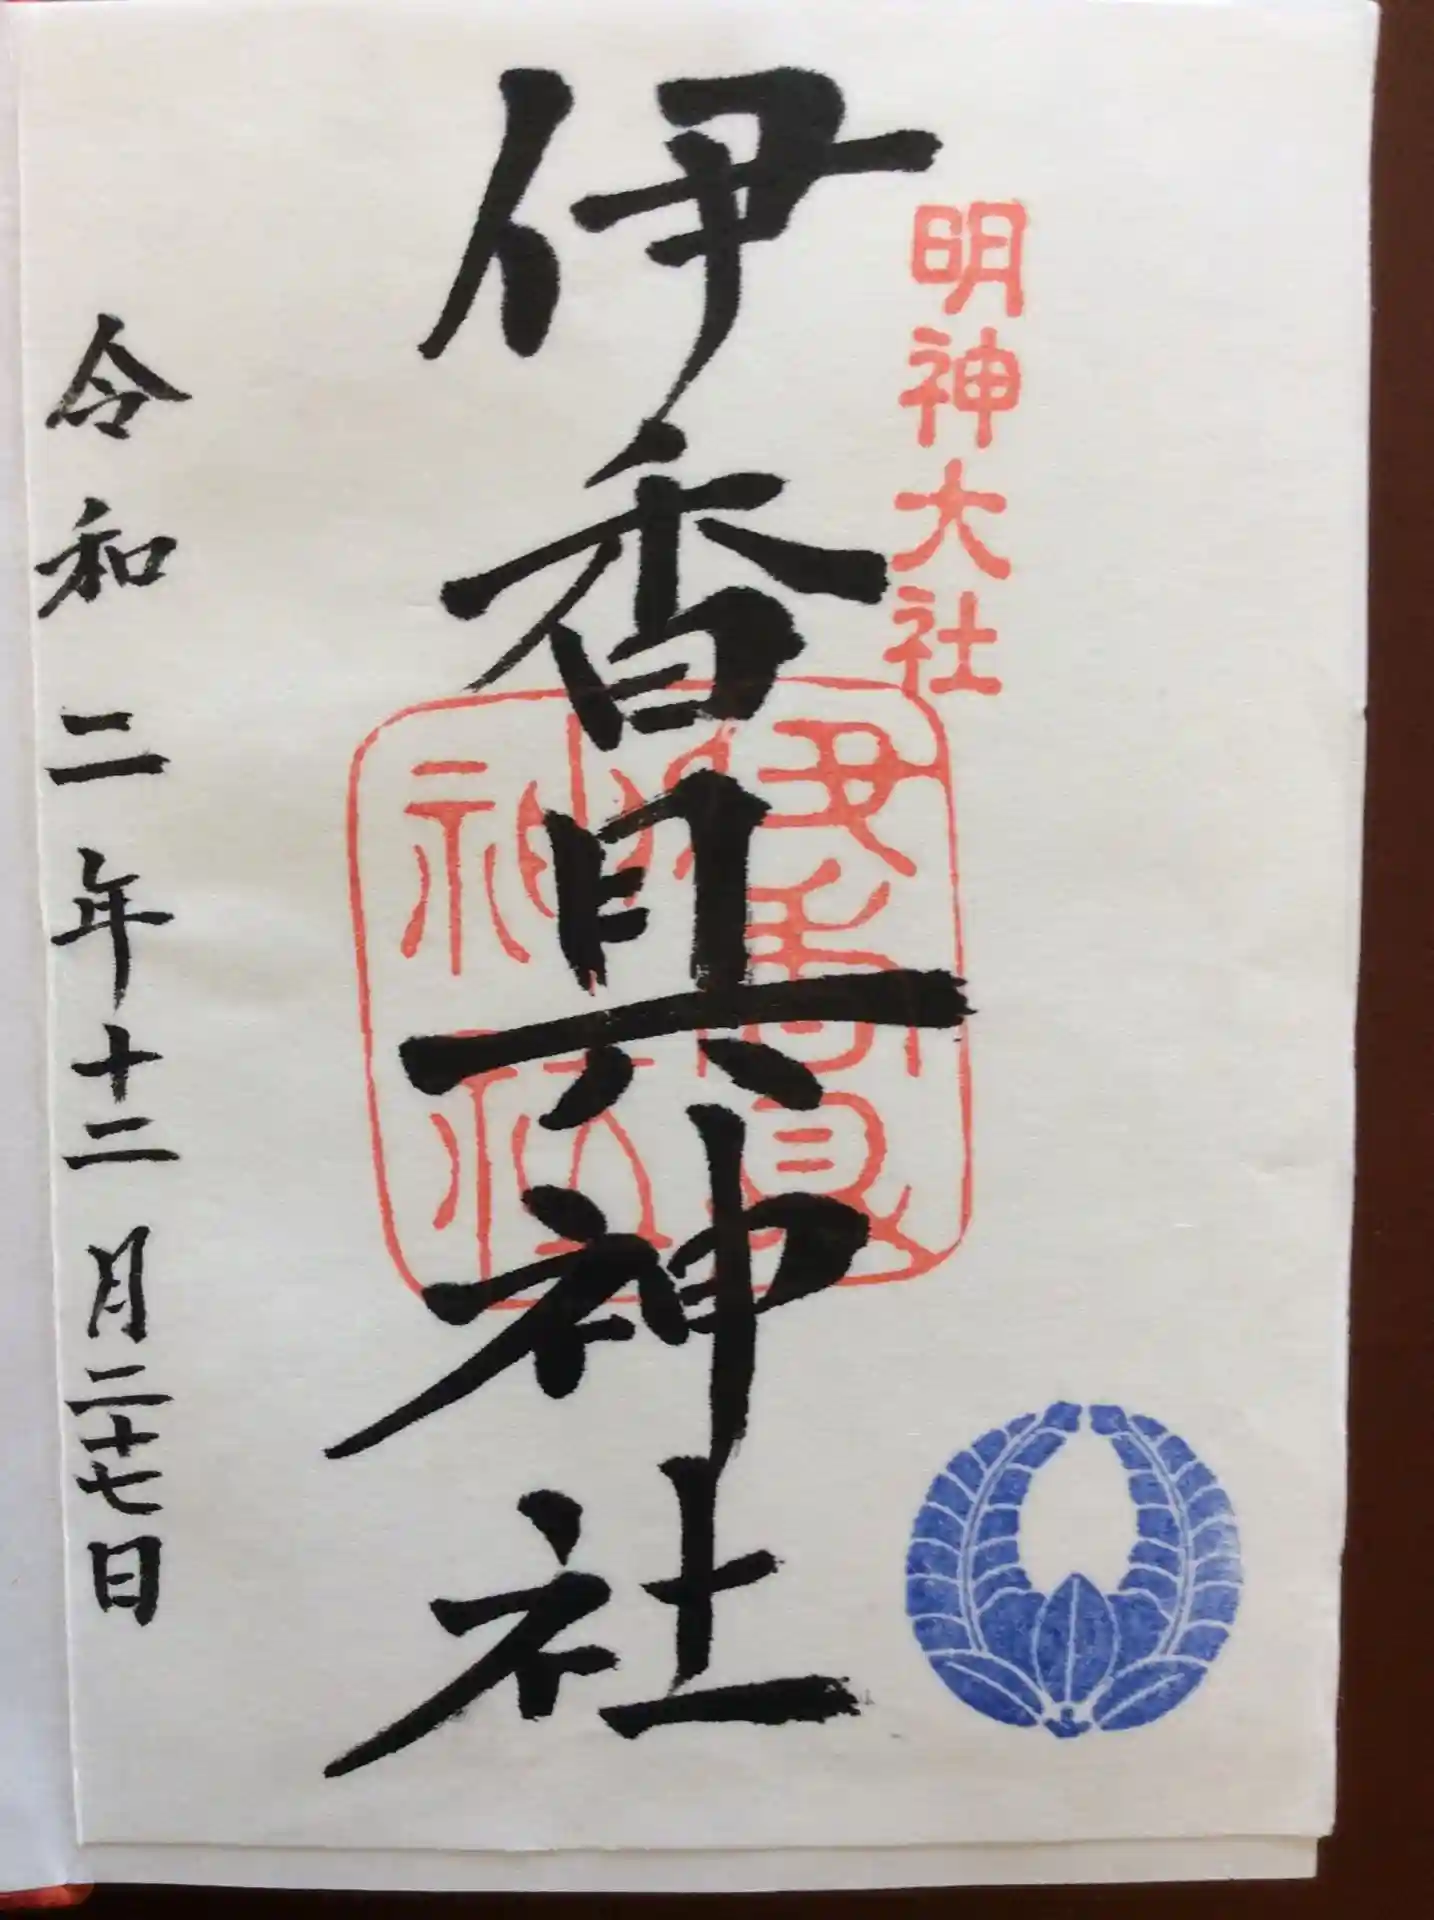 明神大社
伊香具神社
伊香具
神社
令和二年十二月二十七日